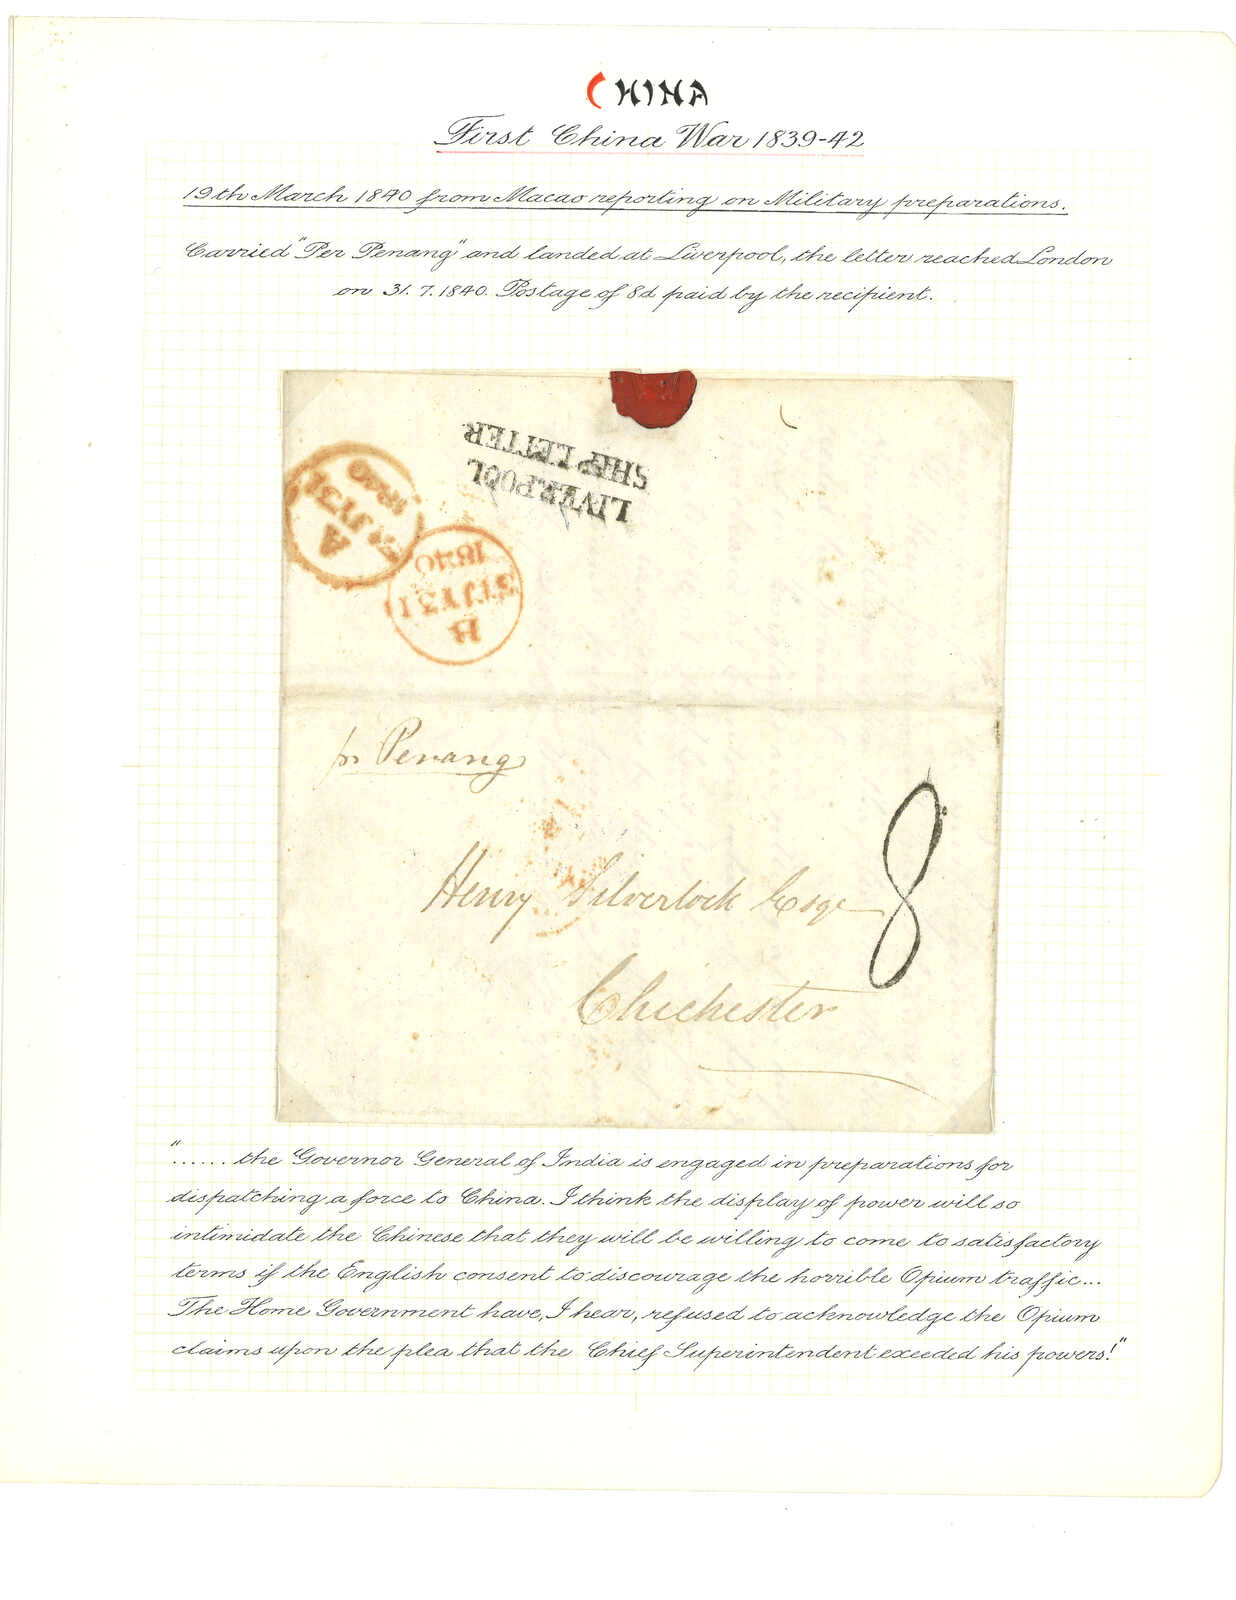 CHINA
First China War 1839-42
19th March 1840 from Macao reporting on Military preparations.
Carried "Per Penang" and landed at Liverpool, the letter reached London
on 31.7.1840. Postage of 8d paid by the recipient.
LIVERPOOL
SHIP LETTER
A
JY31
1840
31JY31
1840
pr Penang
8
Henry Silverlock Esqe
Chichester
"...... the Governor General of India is engaged in preparations for
dispatching a force to China. I think the display of power will so
intimidate the Chinese that they will be willing to come to satisfactory
terms if the English consent to discourage the horrible Opium traffic...
The Home Government have, I hear, refused to acknowledge the Opium
claims upon the plea that the Chief Superintendent exceeded his powers!"